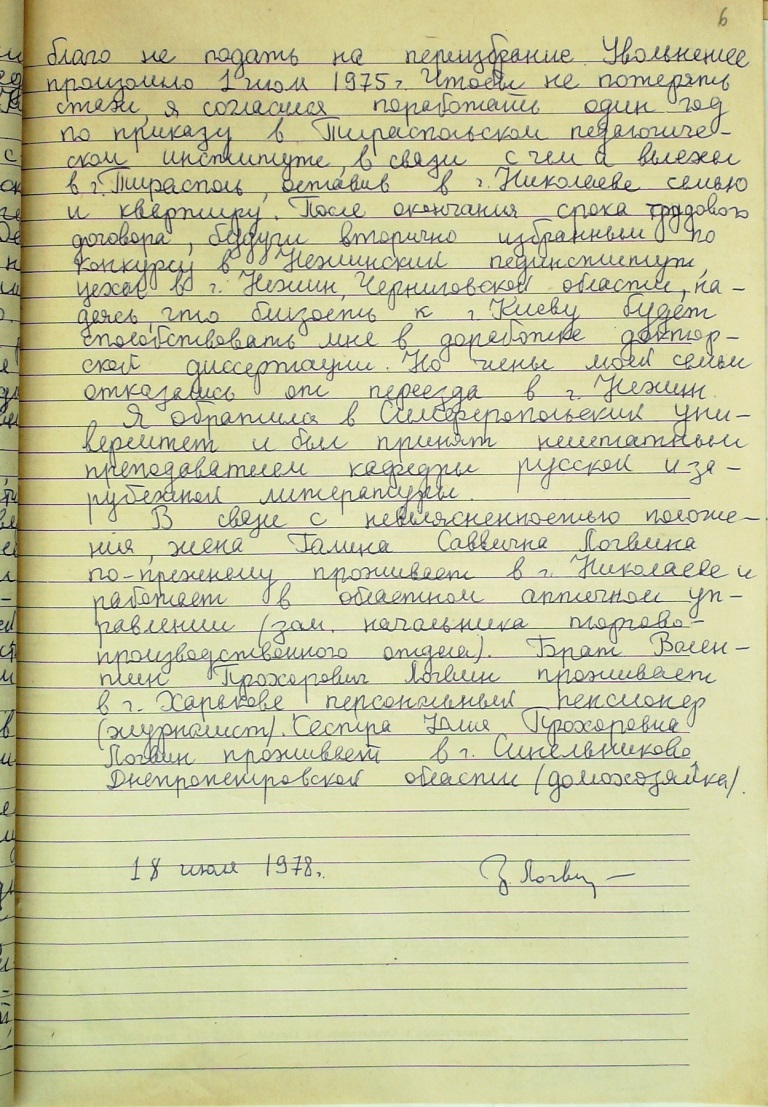 6
благо не подать на переизбрание. Увольнение
произошло 1 июля 1975 г. Чтобы не потерять
стажа, я согласился поработать один год
по приказу в Тираспольском педагогиче-
ском институте, в связи с чем и выехал
в г. Тирасполь, оставив в г. Николаеве семью
и квартиру. После окончания срока трудового
договора, будучи вторично избранным по
конкурсу в Нежинский пединститут,
уехал в г. Нежин, Черниговской области, на-
деясь, что близость к г. Киеву будет
способствовать мне в доработке доктор-
ской диссертации. Но члены моей семьи
отказались от переезда в г. Нежин.
Я обратился в Симферопольский уни-
верситет и был принят нештатным
преподавателем кафедры русской и за-
рубежной литературы.
В связи с невыясненностью положе-
ния, жена Галина Саввична Логвина
по-прежнему проживает в г. Николаеве и
работает в областном аптечном уп-
равлении (зам. начальника торгово-
производственного отдела). Брат Вален-
тин Прохорович Логвин проживает
в г. Харькове персональный пенсионер
(журналист). Сестра Юлия Прохоровна
Логвин проживает в г. Синельниково,
Днепропетровской области (домохозяйка).
18 июля 1978 г. Логвин